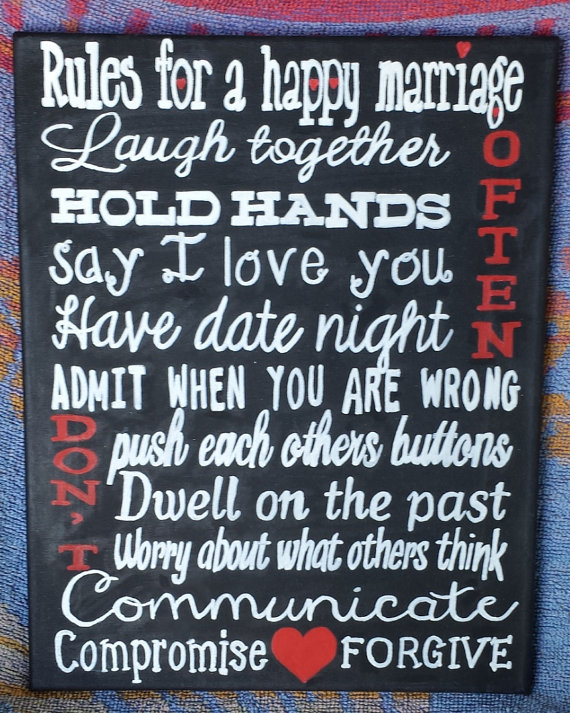 Rules for a happy marriage
Laugh together
HOLD HANDS
say I love you
Have date night
OFTEN
ADMIT WHEN YOU ARE WRONG
DON'T
push each others buttons
Dwell on the past
Worry about what others think
Communicate
Compromise
FORGIVE